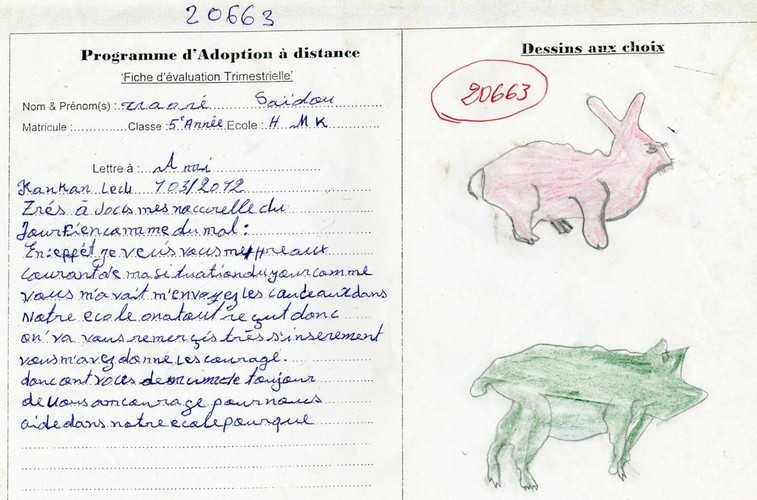 20663
Programme d'Adoption à distance
'Fiche d'évaluation Trimestrielle'
Nom & Prénom(s) : Saïdou
Matricule : Classe : 5e Année Ecole : H M K
Lettre à : Ami
Kankan Le 103/2012
Trés à
Jour bien comme du mal :
En : effét je veus vous metre aux
courant de ma situation du jour comme
vous m'avait m'envoyez les caudeaux dans
Notre ecole ona tout reçut donc
on'va vous remerçis très s'inserement
vous m'avez donné les courage.
donc ont vous toujour
de nous ancourage pour nous
aide dans notre ecole pour que
Dessins aux choix
20663